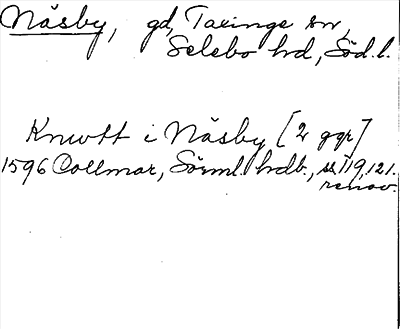 Näsby, gd, Taxinge sn,
Selebo hd, Söd. l.
Knutt i Näsby [2 ggr]
1596 Collmar, Sörml. hdb., ss. 119, 121.
renov.